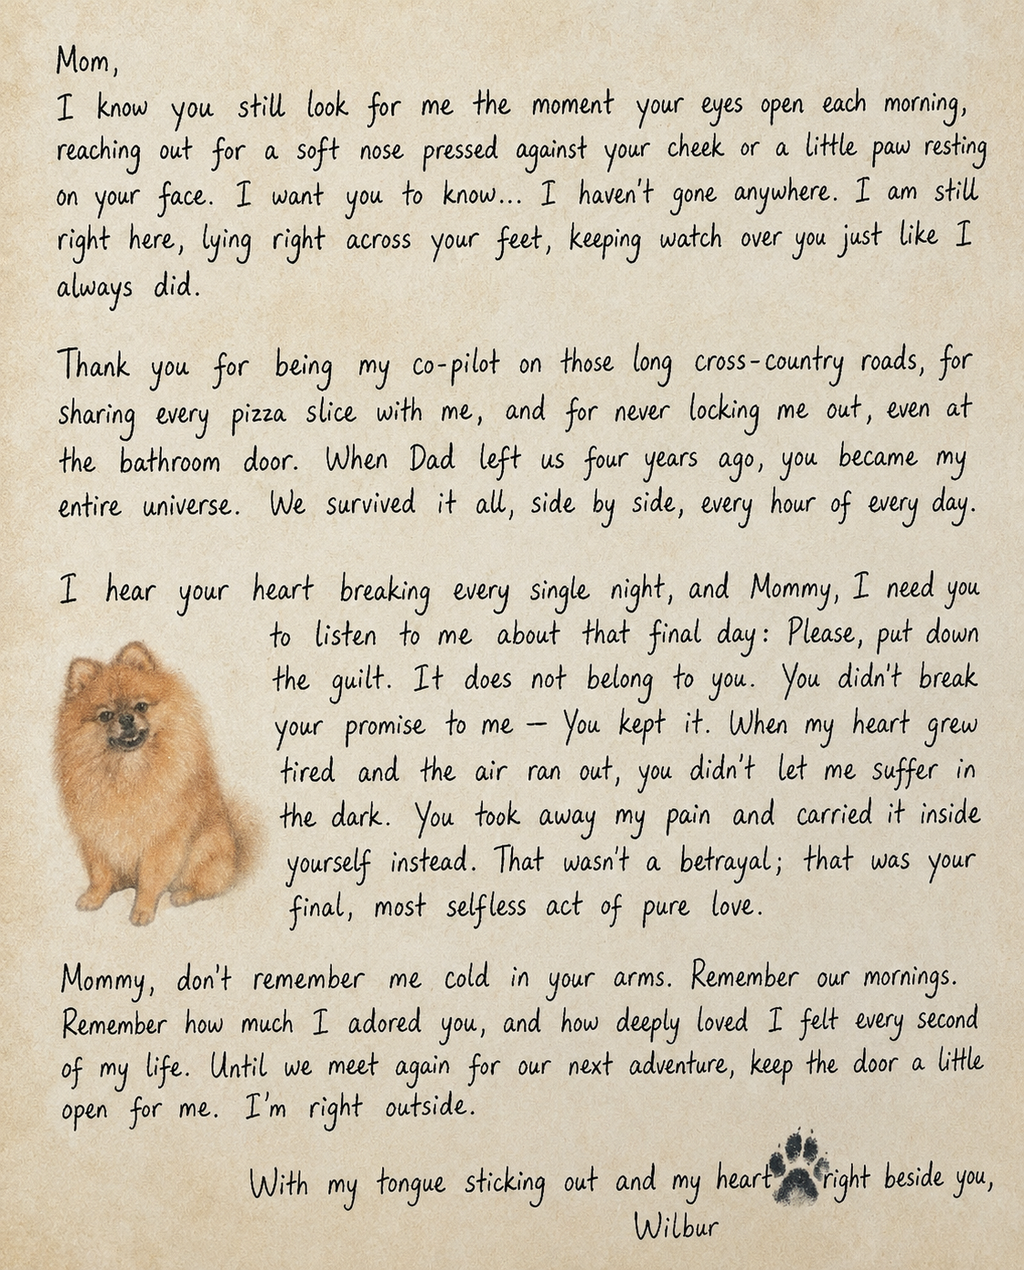 Mom,
I know you still look for me the moment your eyes open each morning,
reaching out for a soft nose pressed against your cheek or a little paw resting
on your face. I want you to know... I haven't gone anywhere. I am still
right here, lying right across your feet, keeping watch over you just like I
always did.
Thank you for being my co-pilot on those long cross-country roads, for
sharing every pizza slice with me, and for never locking me out, even at
the bathroom door. When Dad left us four years ago, you became my
entire universe. We survived it all, side by side, every hour of every day.
I hear your heart breaking every single night, and Mommy, I need you
to listen to me about that final day: Please, put down
the guilt. It does not belong to you. You didn't break
your promise to me — You kept it. When my heart grew
tired and the air ran out, you didn't let me suffer in
the dark. You took away my pain and carried it inside
yourself instead. That wasn't a betrayal; that was your
final, most selfless act of pure love.
Mommy, don't remember me cold in your arms. Remember our mornings.
Remember how much I adored you, and how deeply loved I felt every second
of my life. Until we meet again for our next adventure, keep the door a little
open for me. I'm right outside.
With my tongue sticking out and my heart right beside you,
Wilbur